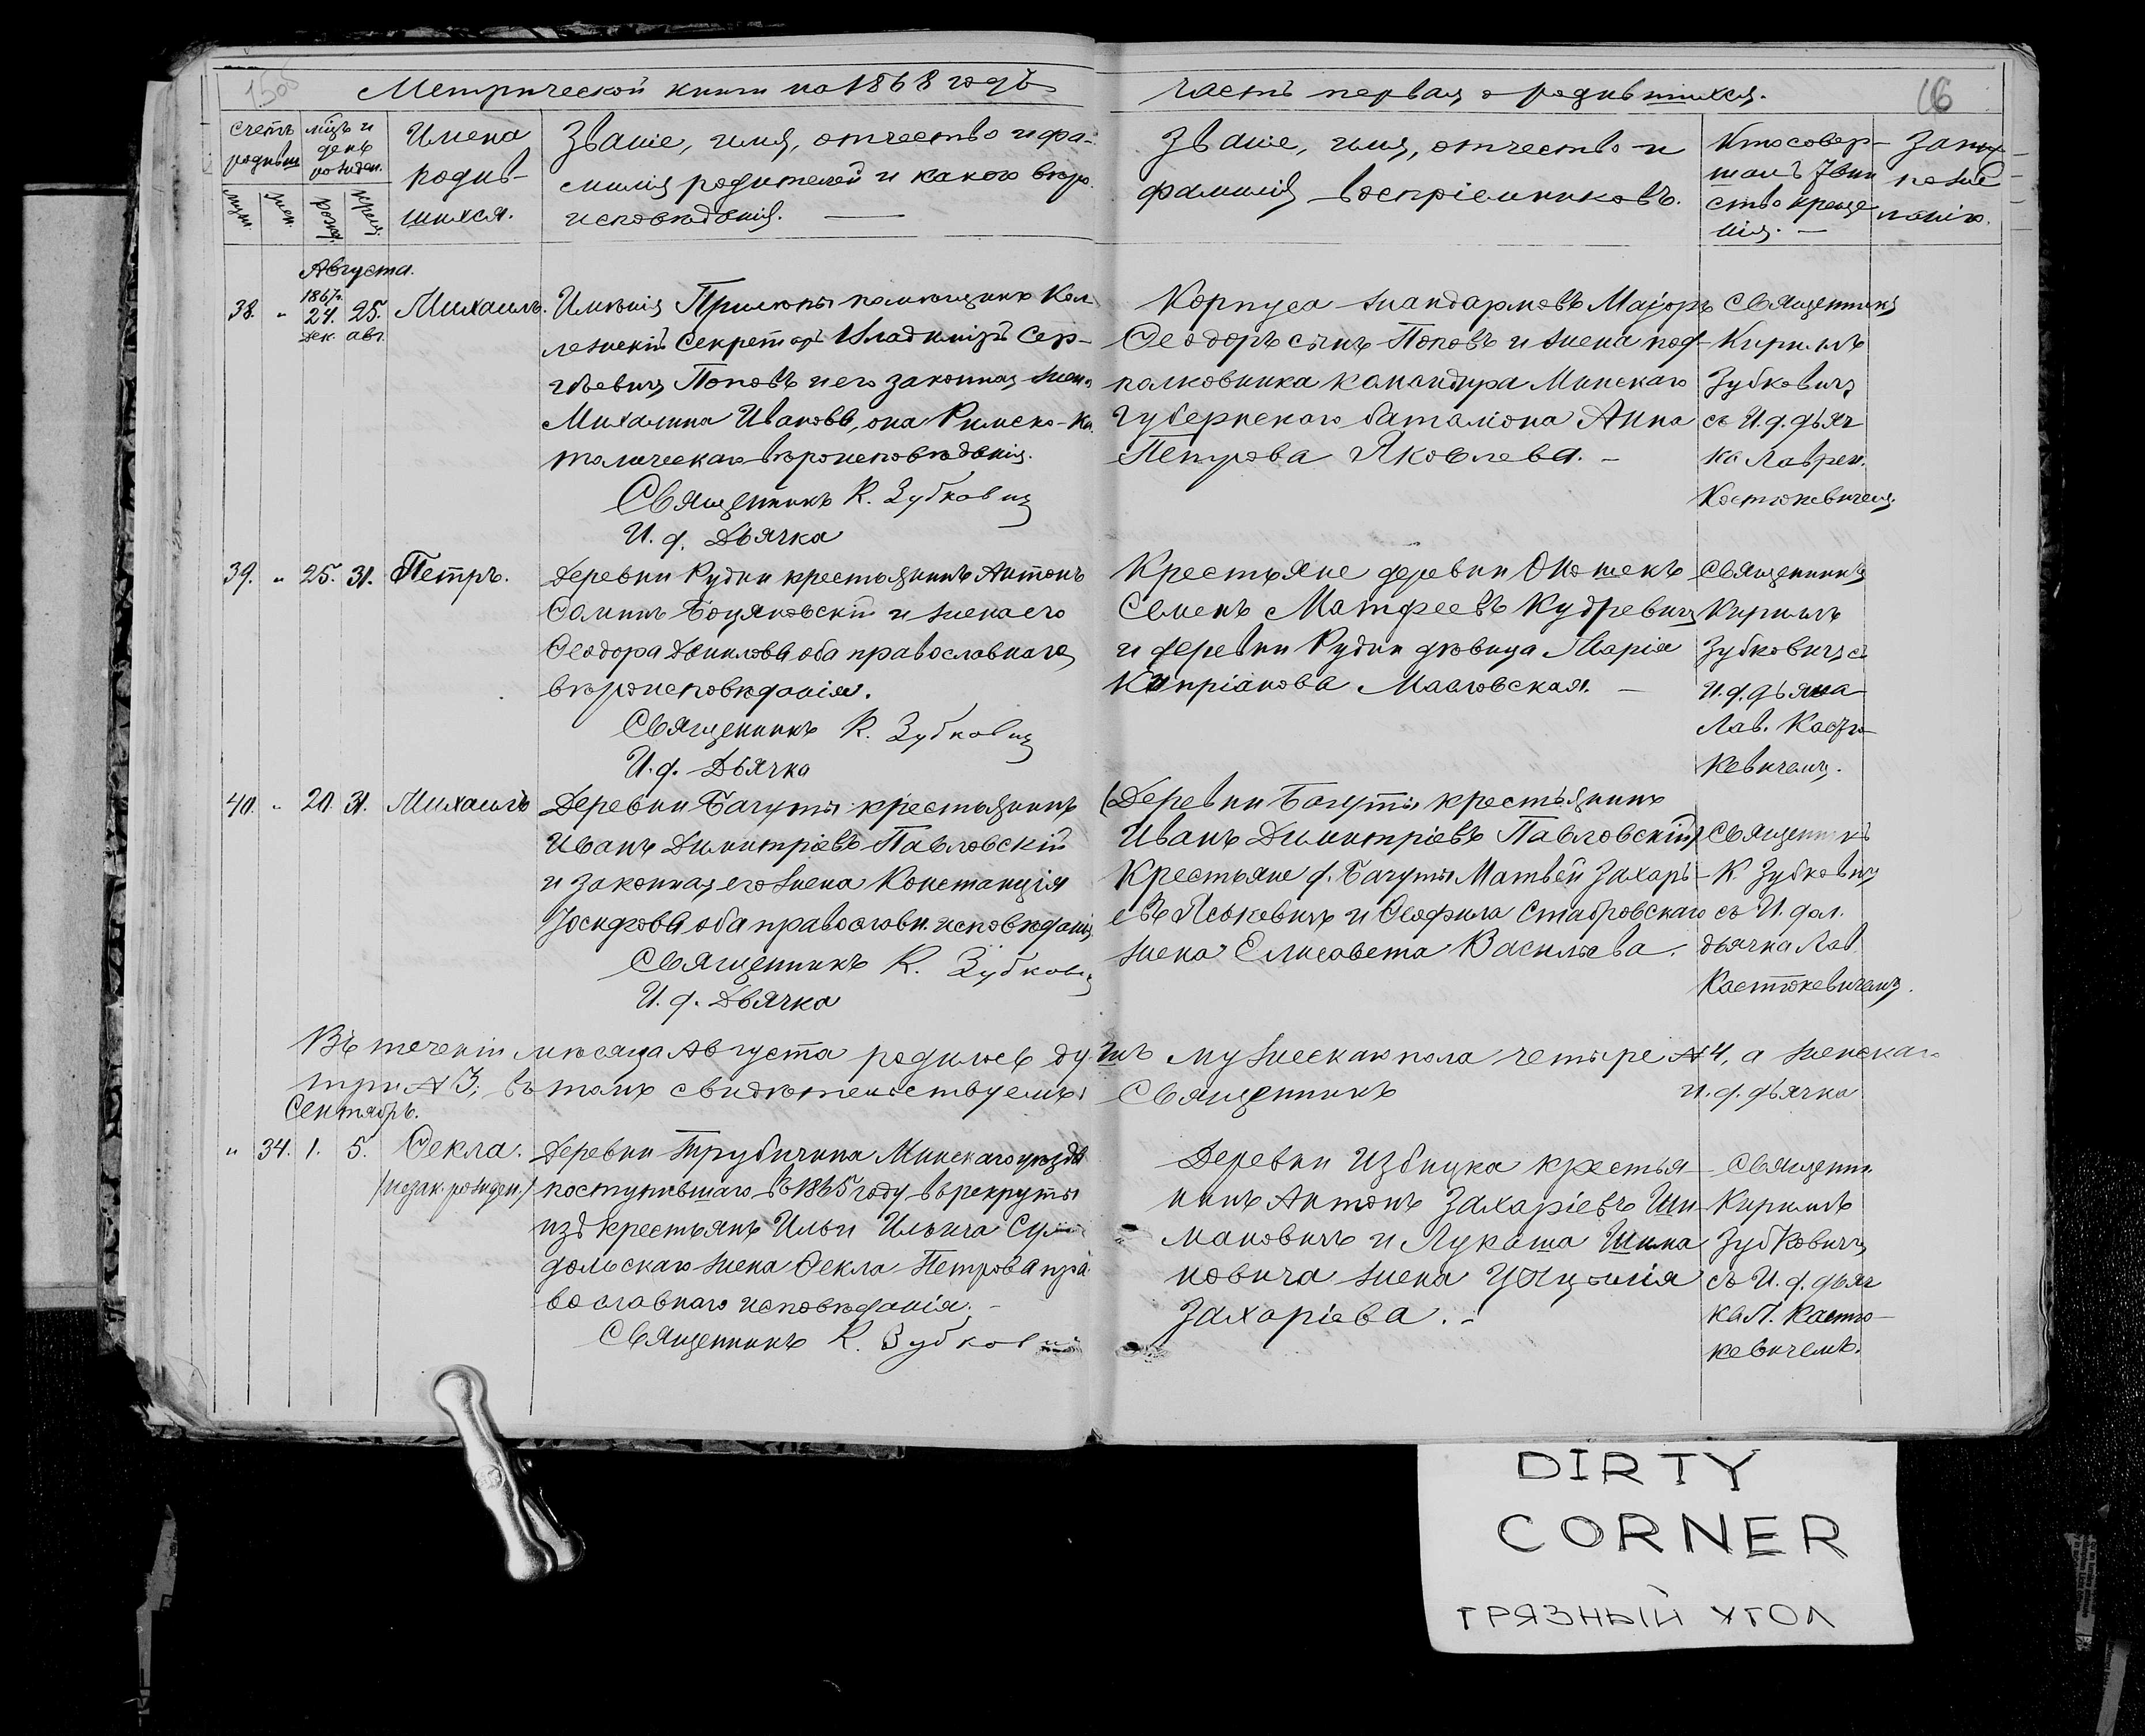 Метрической книги на 1868 годъ
часть первая о родившихся.
16
счетъ родивш.
мцъ и день рожден.
Имена родив-
шихся.
Званіе, имя, отчество и фа-
милія родителей и какого вѣро-
исповѣданія.
Званіе, имя, отчество и
фамилія воспріемниковъ.
Кто совер-
шалъ
ство креще
нія.
муж.
жен.
рожд.
крещ.
Августа.
38. " 1867 г. 24. дек. 25. авг. Михаилъ.
Имѣнія Прилюкъ помѣщикъ Кол-
лежскій Секретарь Владиміръ Сер-
гѣевичъ Поповъ и его законная жена
Михалина Иванова, она Римско-Ка
толическаго вѣроисповѣданія.
Священникъ К. Зубковичъ
И. д. Дьячка
Корпуса жандармовъ Маіоръ
Ѳеодоръ сынъ Поповъ и жена под-
полковника командира Минскаго
Губернскаго баталіона Анна
Петрова Яковлева. –
Священникъ
Кириллъ
Зубковичъ
съ И. д. дьяч
ка Лаврен.
Костюкевичемъ.
39. " 25. 31. Петръ.
Деревни Рудни крестьянинъ Антонъ
Ѳоминъ Боцяновскій и жена его
Ѳеодора Данилова оба православнаго
вѣроисповѣданія.
Священникъ К. Зубковичъ
И. д. Дьячка
Крестьяне деревни
Семенъ Матфеевъ Кудревичъ
и деревни Рудни дѣвица Марія
Кипріанова –
Священникъ
Кириллъ
Зубковичъ съ
И. д. дьячка
Лав. Костю-
кевичемъ.
40. " 20. 31. Михаилъ
Деревни Багуты крестьянинъ
Иванъ Димитріевъ Павловскій
и законная его жена Констанція
Іосифова оба православн. исповѣданія
Священникъ К. Зубкович
И. д. Дьячка
(Деревни Багуты крестьянинъ
Иванъ Димитріевъ Павловскій)
Крестьяне д. Багуты Матвѣй Захарь-
евъ Яськевичъ и Ѳеофила Ставровскаго
жена Елисавета Васильева.
Священникъ
К. Зубковичъ
съ И. дол.
дьячка Лав
Костюкевичемъ.
Въ теченіи мѣсяца Августа родилось душъ мужескаго пола четыре № 4, а женскаго
три № 3; въ томъ свидѣтельствуемъ: Священникъ И. д. дьячка
Сентябрь.
" 34. 1. 5. Ѳекла.
/незак. рожден./
Деревни Трубичина Минскаго уѣзда
поступившаго въ 1865 году в рекруты
изъ крестьянъ Ильи Ильича
дольскаго жена Ѳекла Петрова пра
вославнаго исповѣданія. –
Священникъ К. Зубкович
Деревни Избицка крестья-
нинъ Антонъ Захаріевъ Ши-
мановичъ и Лукаша Шима
новича жена
Захаріева.
Священни
Кириллъ
Зубковичъ
съ И. д. дьяч
ка Л. Костю-
кевичемъ.
DIRTY
CORNER
ГРЯЗНЫЙ УГОЛ